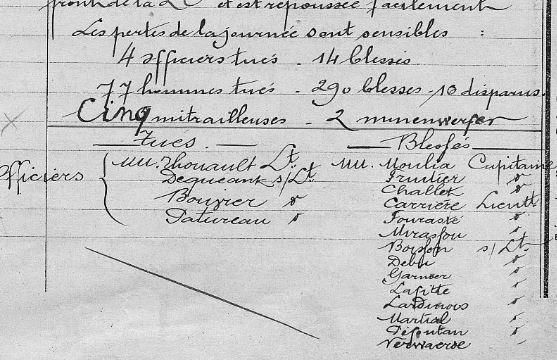 front de la D. et est repoussée facilement
Les pertes de la journée sont sensibles :
4 officiers tués - 14 blessés
77 hommes tués - 290 blessés - 10 disparus.
Cinq mitrailleuses - 2 minenwerfer
Tués — Blessés
Officiers MM. Thouault Lt. MM. Moulia Capitaine
Degueant s/Lt. Fruitier d°
Bouyrer d° Challet d°
Patureau d° Carrière Lieutt
Fouraste d°
Mirassou d°
Boisson s/Lt.
Debu d°
Garnier d°
Lafitte d°
Lardinois d°
Martial d°
Dépoutan d°
Verwaerde d°